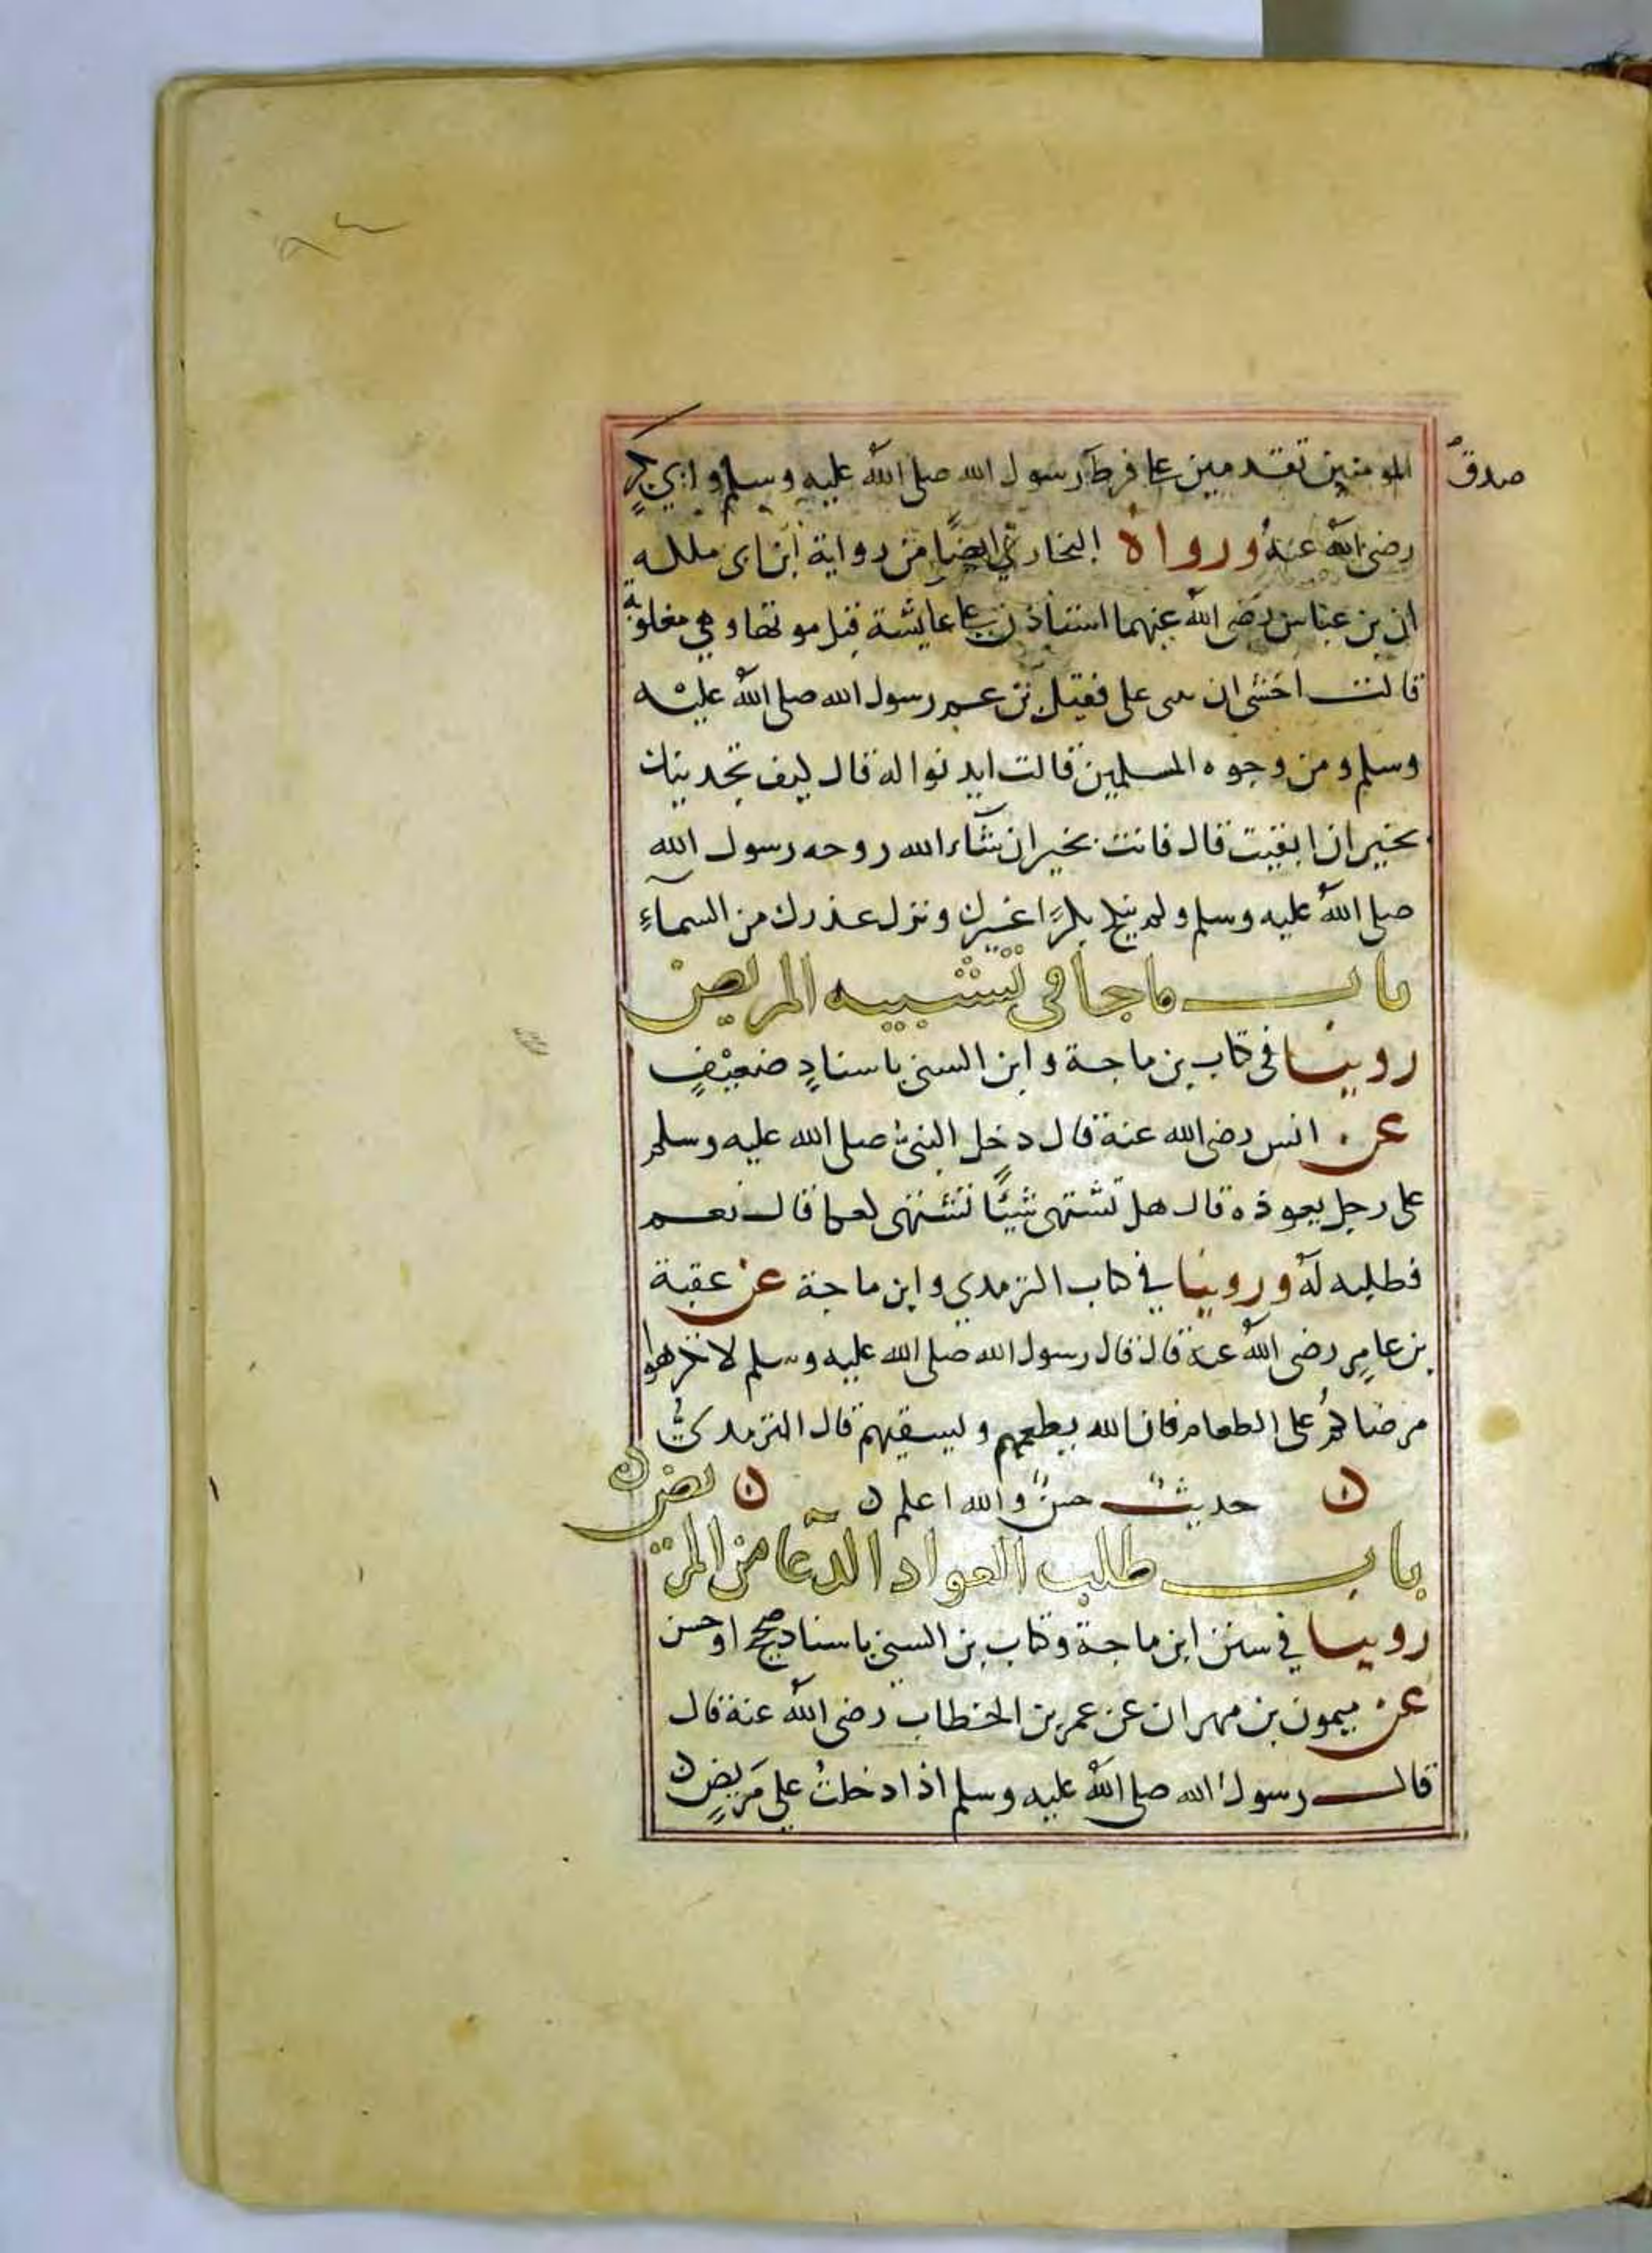 صدق
المومنين تقدمين على فرط رسول الله صلى الله عليه وسلم وابي بكر
رضى الله عنه ورواه البخاري ايضًا من رواية ابن ابى مليكه
ان بن عباس رضى الله عنهما استاذن على عايشة قبل موتها وهي مغلوبة
قالت اخشى ان يثنى على فقيل بن عم رسول الله صلى الله عليه
وسلم ومن وجوه المسلمين قالت ايدنوا له قال كيف تجدينك
بخير ان ابقيت قال فانت بخير ان شآء الله زوجه رسول الله
صلى الله عليه وسلم ولم ينكح بكرًا غيرك ونزل عذرك من السمآءِ
باب ما جا فى تشبيه المريض
روينا فى كتاب بن ماجة وابن السني باسنادٍ ضعيْفٍ
عن انس رضى الله عنة قال دخل النبيُّ صلى الله عليه وسلم
على رجل يعوذه قال هل تشتهى شيئًا تشتهى كعكا قال نعم
فطلبه لهُ وروينا في كتاب الترمدي وابن ماجة عن عقبة
بن عامرٍ رضى الله عنة قال قال رسول الله صلى الله عليه وسلم لا تكرهوا
مرضاكمُ على الطعام فان الله يطعمهم ويسقيهم قال الترمديُّ
ن حديثٌ حسنٌ والله اعلم ن ن
باب طلب العواد الدّعا من المريض
روينا في سنن ابن ماجة وكتاب بن السني باسناد صحيح او حسن
عن ميمون بن مهران عن عمر بن الخطاب رضى الله عنة قال
قال رسول الله صلى الله عليه وسلم اذا دخلت على مَريضٍ ن